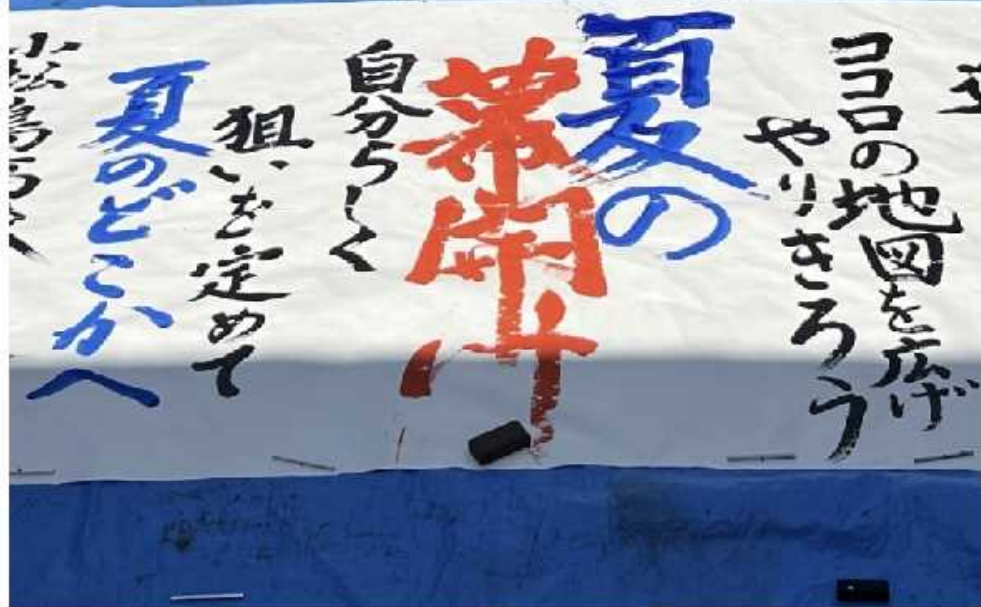 ココロの地図を広げ
やりきろう
夏の
幕開け
自分らしく
狙いを定めて
夏のどこかへ
小松島高校